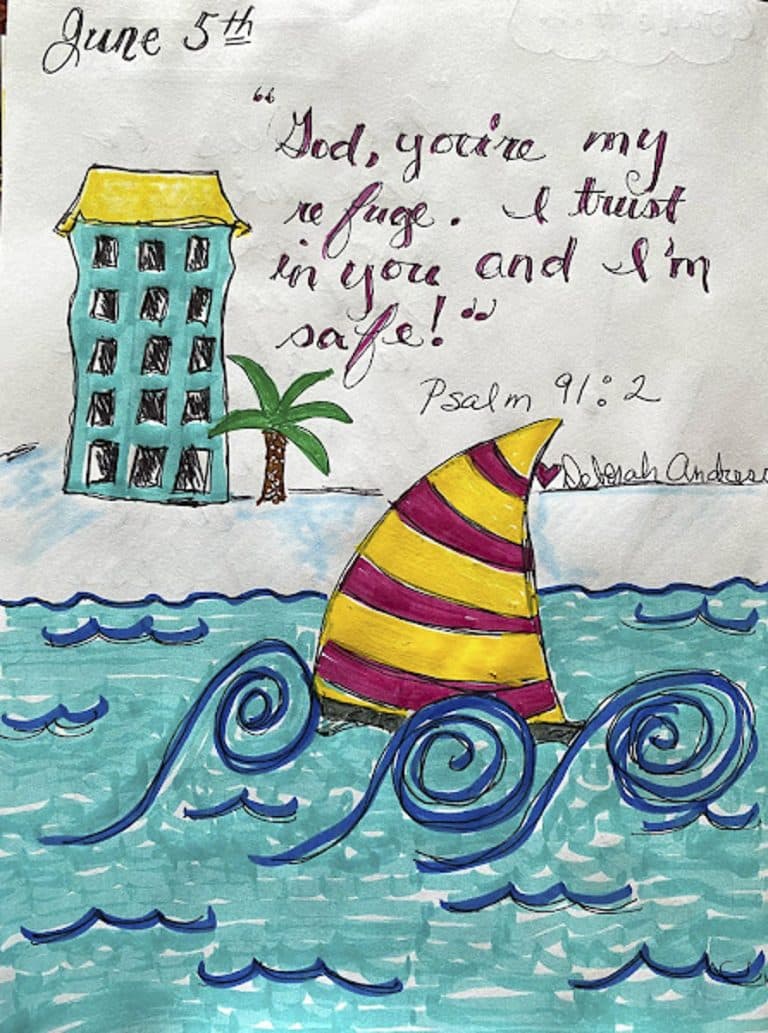 June 5th
"God, you're my
refuge. I trust
in you and I'm
safe!"
Psalm 91:2
Deborah